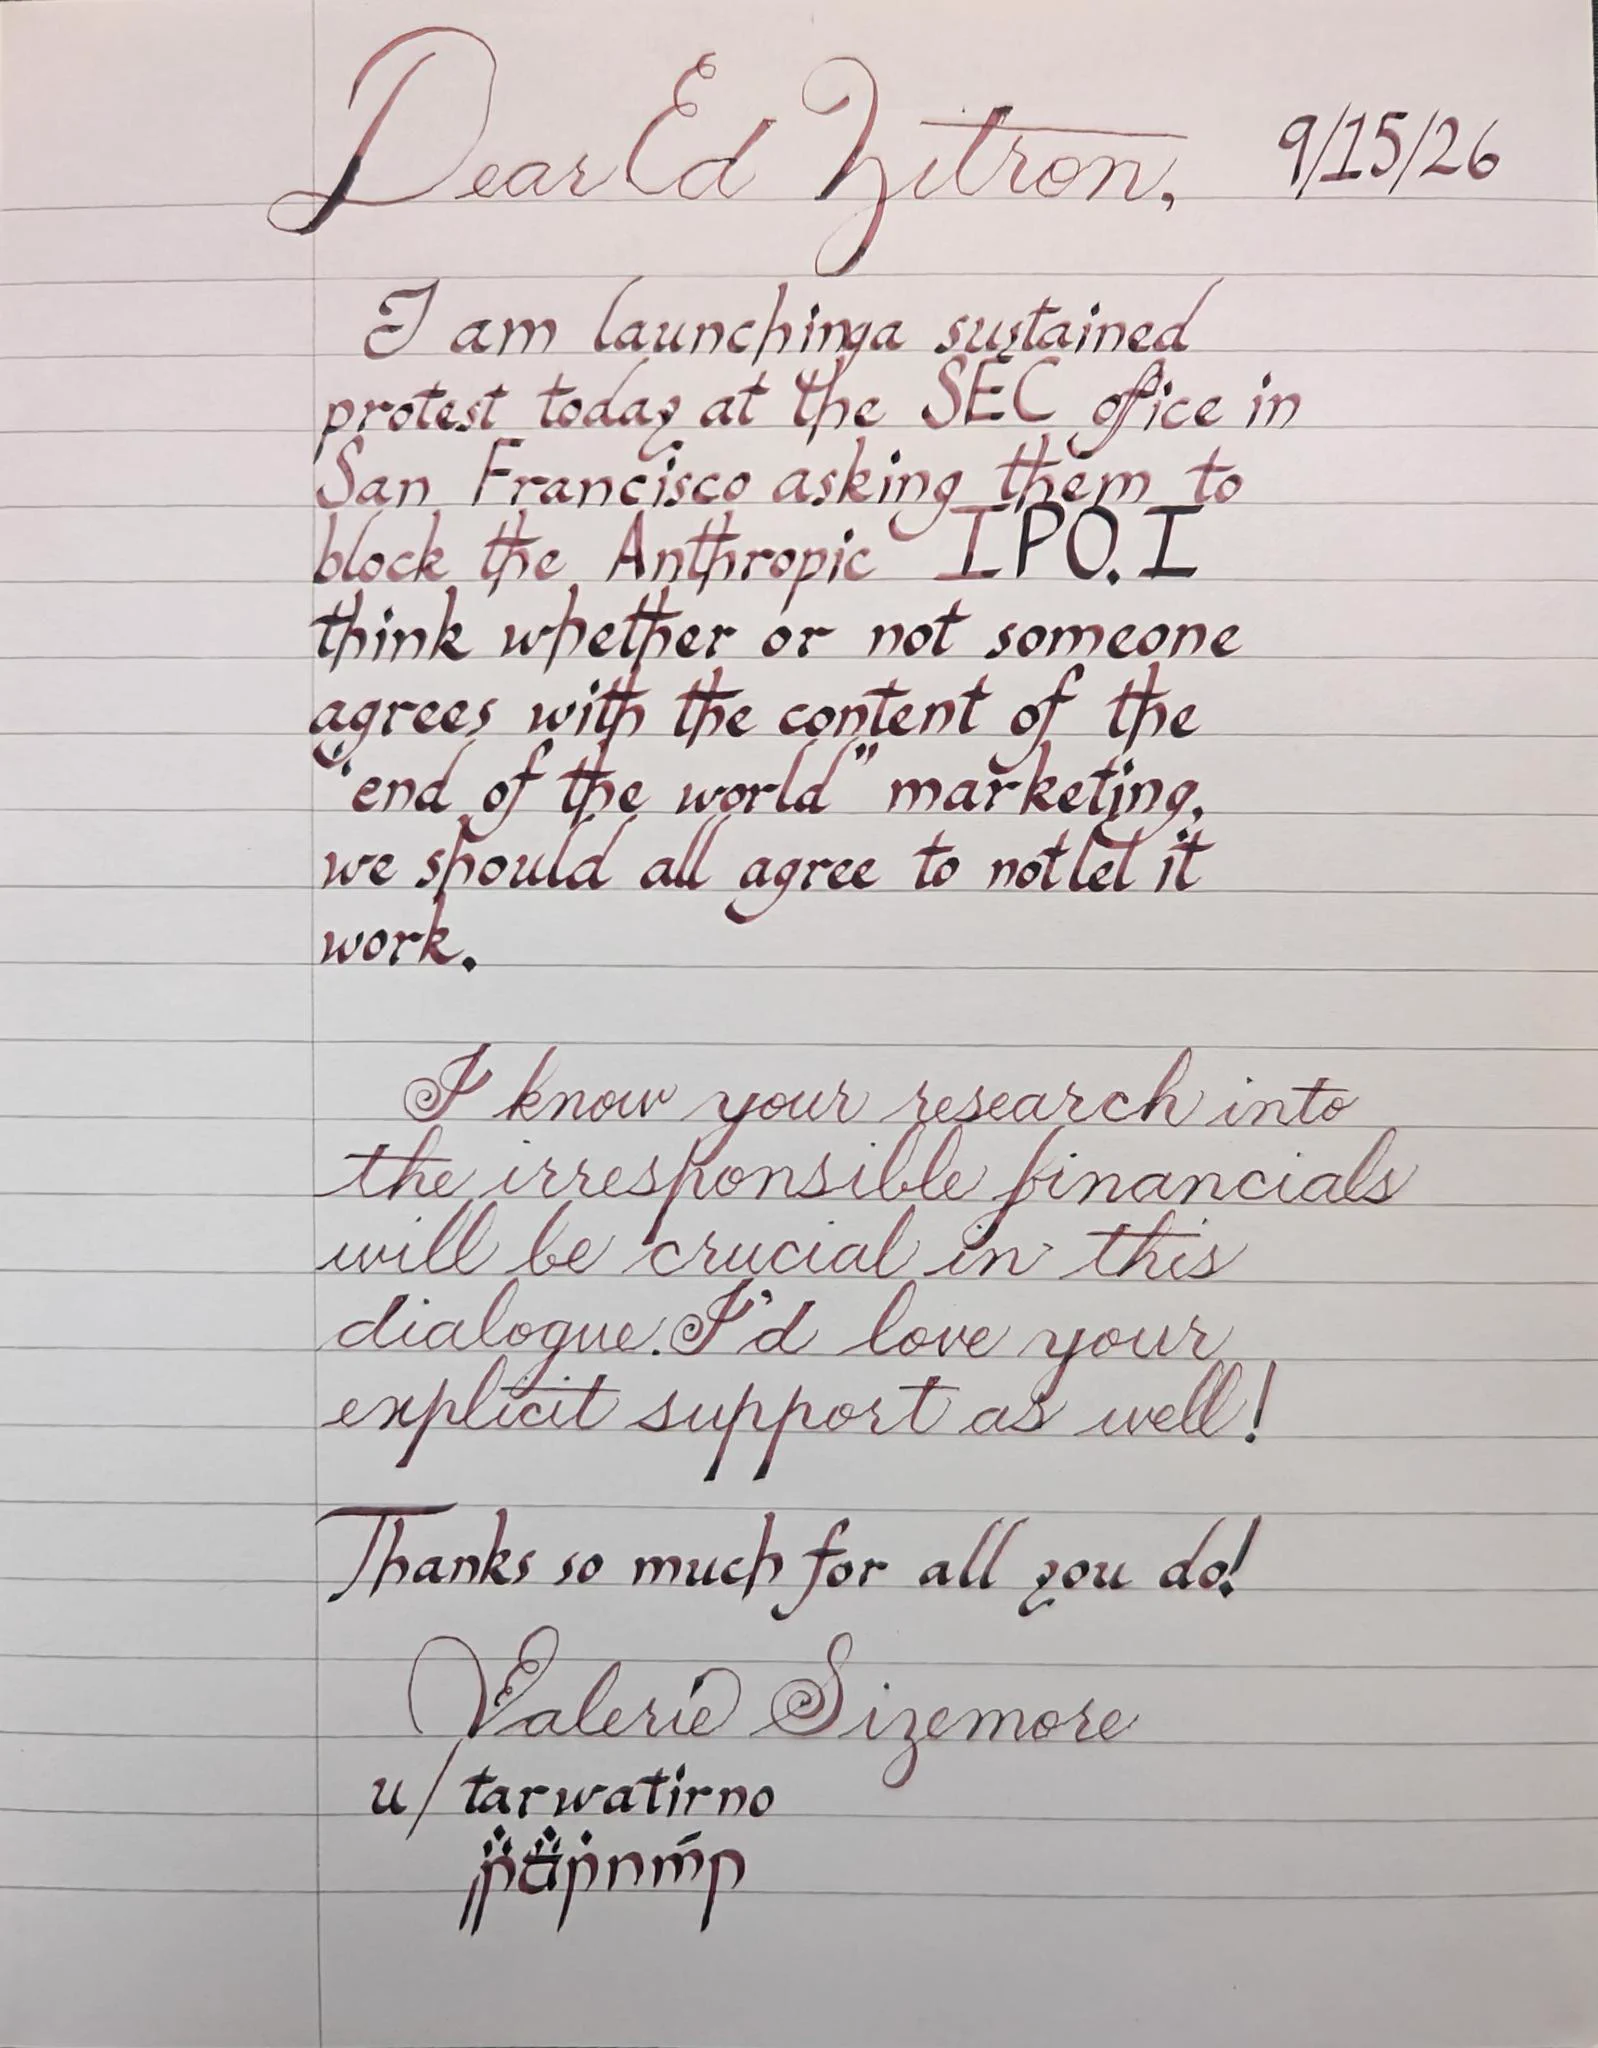 Dear Ed Zitron, 9/15/26
I am launching a sustained
protest today at the SEC office in
San Francisco asking them to
block the Anthropic IPO. I
think whether or not someone
agrees with the content of the
"end of the world" marketing,
we should all agree to not let it
work.
I know your research into
the irresponsible financials
will be crucial in this
dialogue. I'd love your
explicit support as well!
Thanks so much for all you do!
Valerie Sizemore
u/tarwatirno